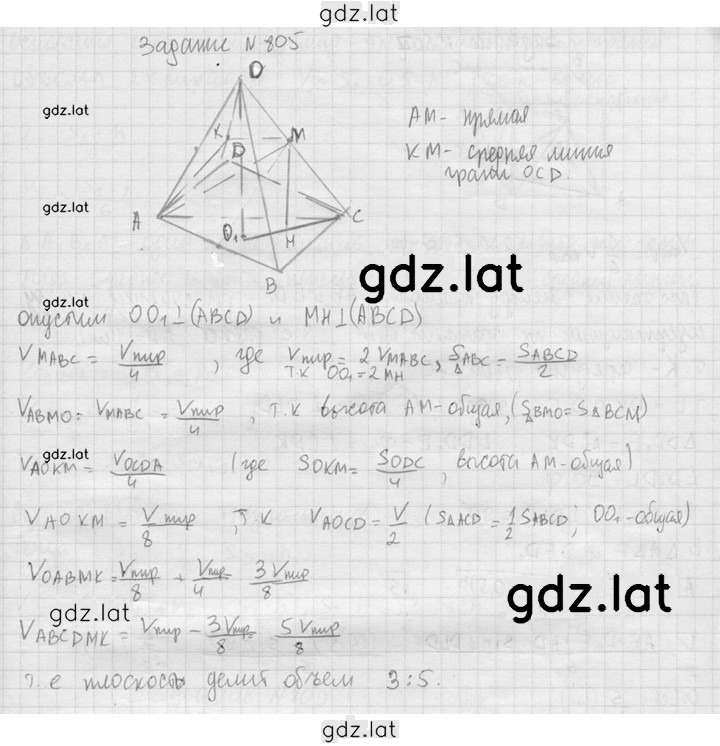 gdz.lat
Задание N 805
gdz.lat
O
K
M
D
A
O₁
H
C
B
AM - прямая
KM - средняя линия
грани OCD.
gdz.lat
gdz.lat
опустим OO₁⊥(ABCD) и MH⊥(ABCD)
V MABC = Vпир/4, где Vпир = 2 V MABC, S△ABC = S ABCD/2
т.к OO₁ = 2 MH
V ABMO = V MABC = Vпир/4, т.к высота AM - общая, (S△BMO = S△BCM)
gdz.lat
V AOKM = V OCDA/4 (где SOKM = S ODC/4, высота AM - общая)
V AOKM = Vпир/8, т.к V AOCD = V/2 (S△ACD = 1/2 S ABCD; OO₁ - общая)
V OABMK = Vпир/8 + Vпир/4 = 3Vпир/8
gdz.lat
gdz.lat
V ABCDMK = Vпир - 3Vпир/8 = 5Vпир/8
т. е плоскость делит объем 3:5.
gdz.lat